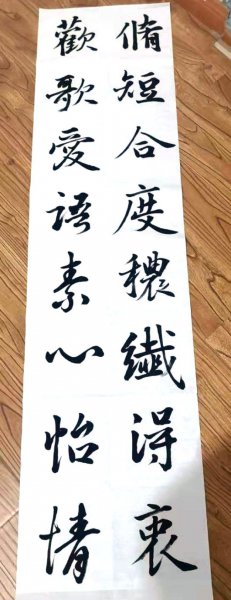 脩短合度穠纖得衷
歡歌愛語素心怡情